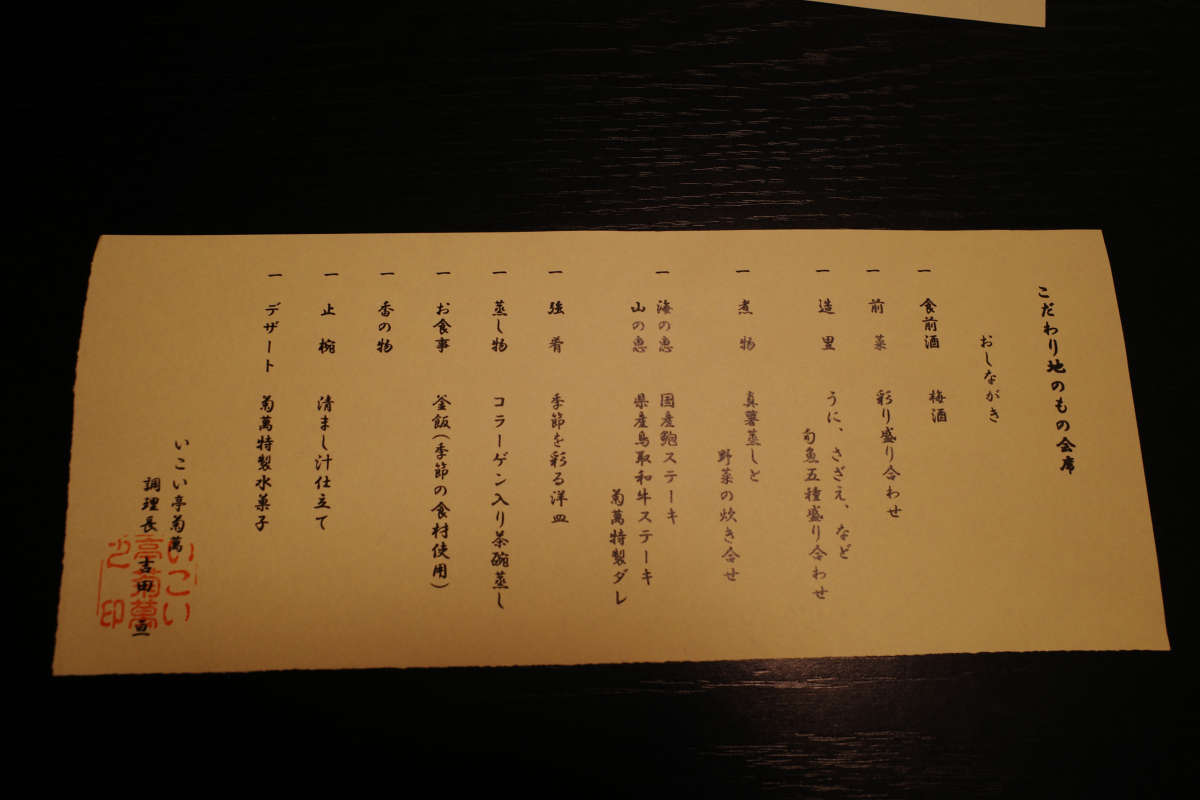 こだわり地のもの会席
おしながき
一 食前酒 梅酒
一 前菜 彩り盛り合わせ
一 造里 うに、さざえ、など
旬魚五種盛り合わせ
一 煮物 真薯蒸しと
野菜の炊き合せ
一 海の恵 国産鮑ステーキ
山の恵 県産鳥取和牛ステーキ
菊萬特製ダレ
一 強肴 季節を彩る洋皿
一 蒸し物 コラーゲン入り茶碗蒸し
一 お食事 釜飯(季節の食材使用)
一 香の物
一 止椀 清まし汁仕立て
一 デザート 菊萬特製水菓子
いこい亭菊萬
調理長 吉田
いこい
亭菊萬
之印